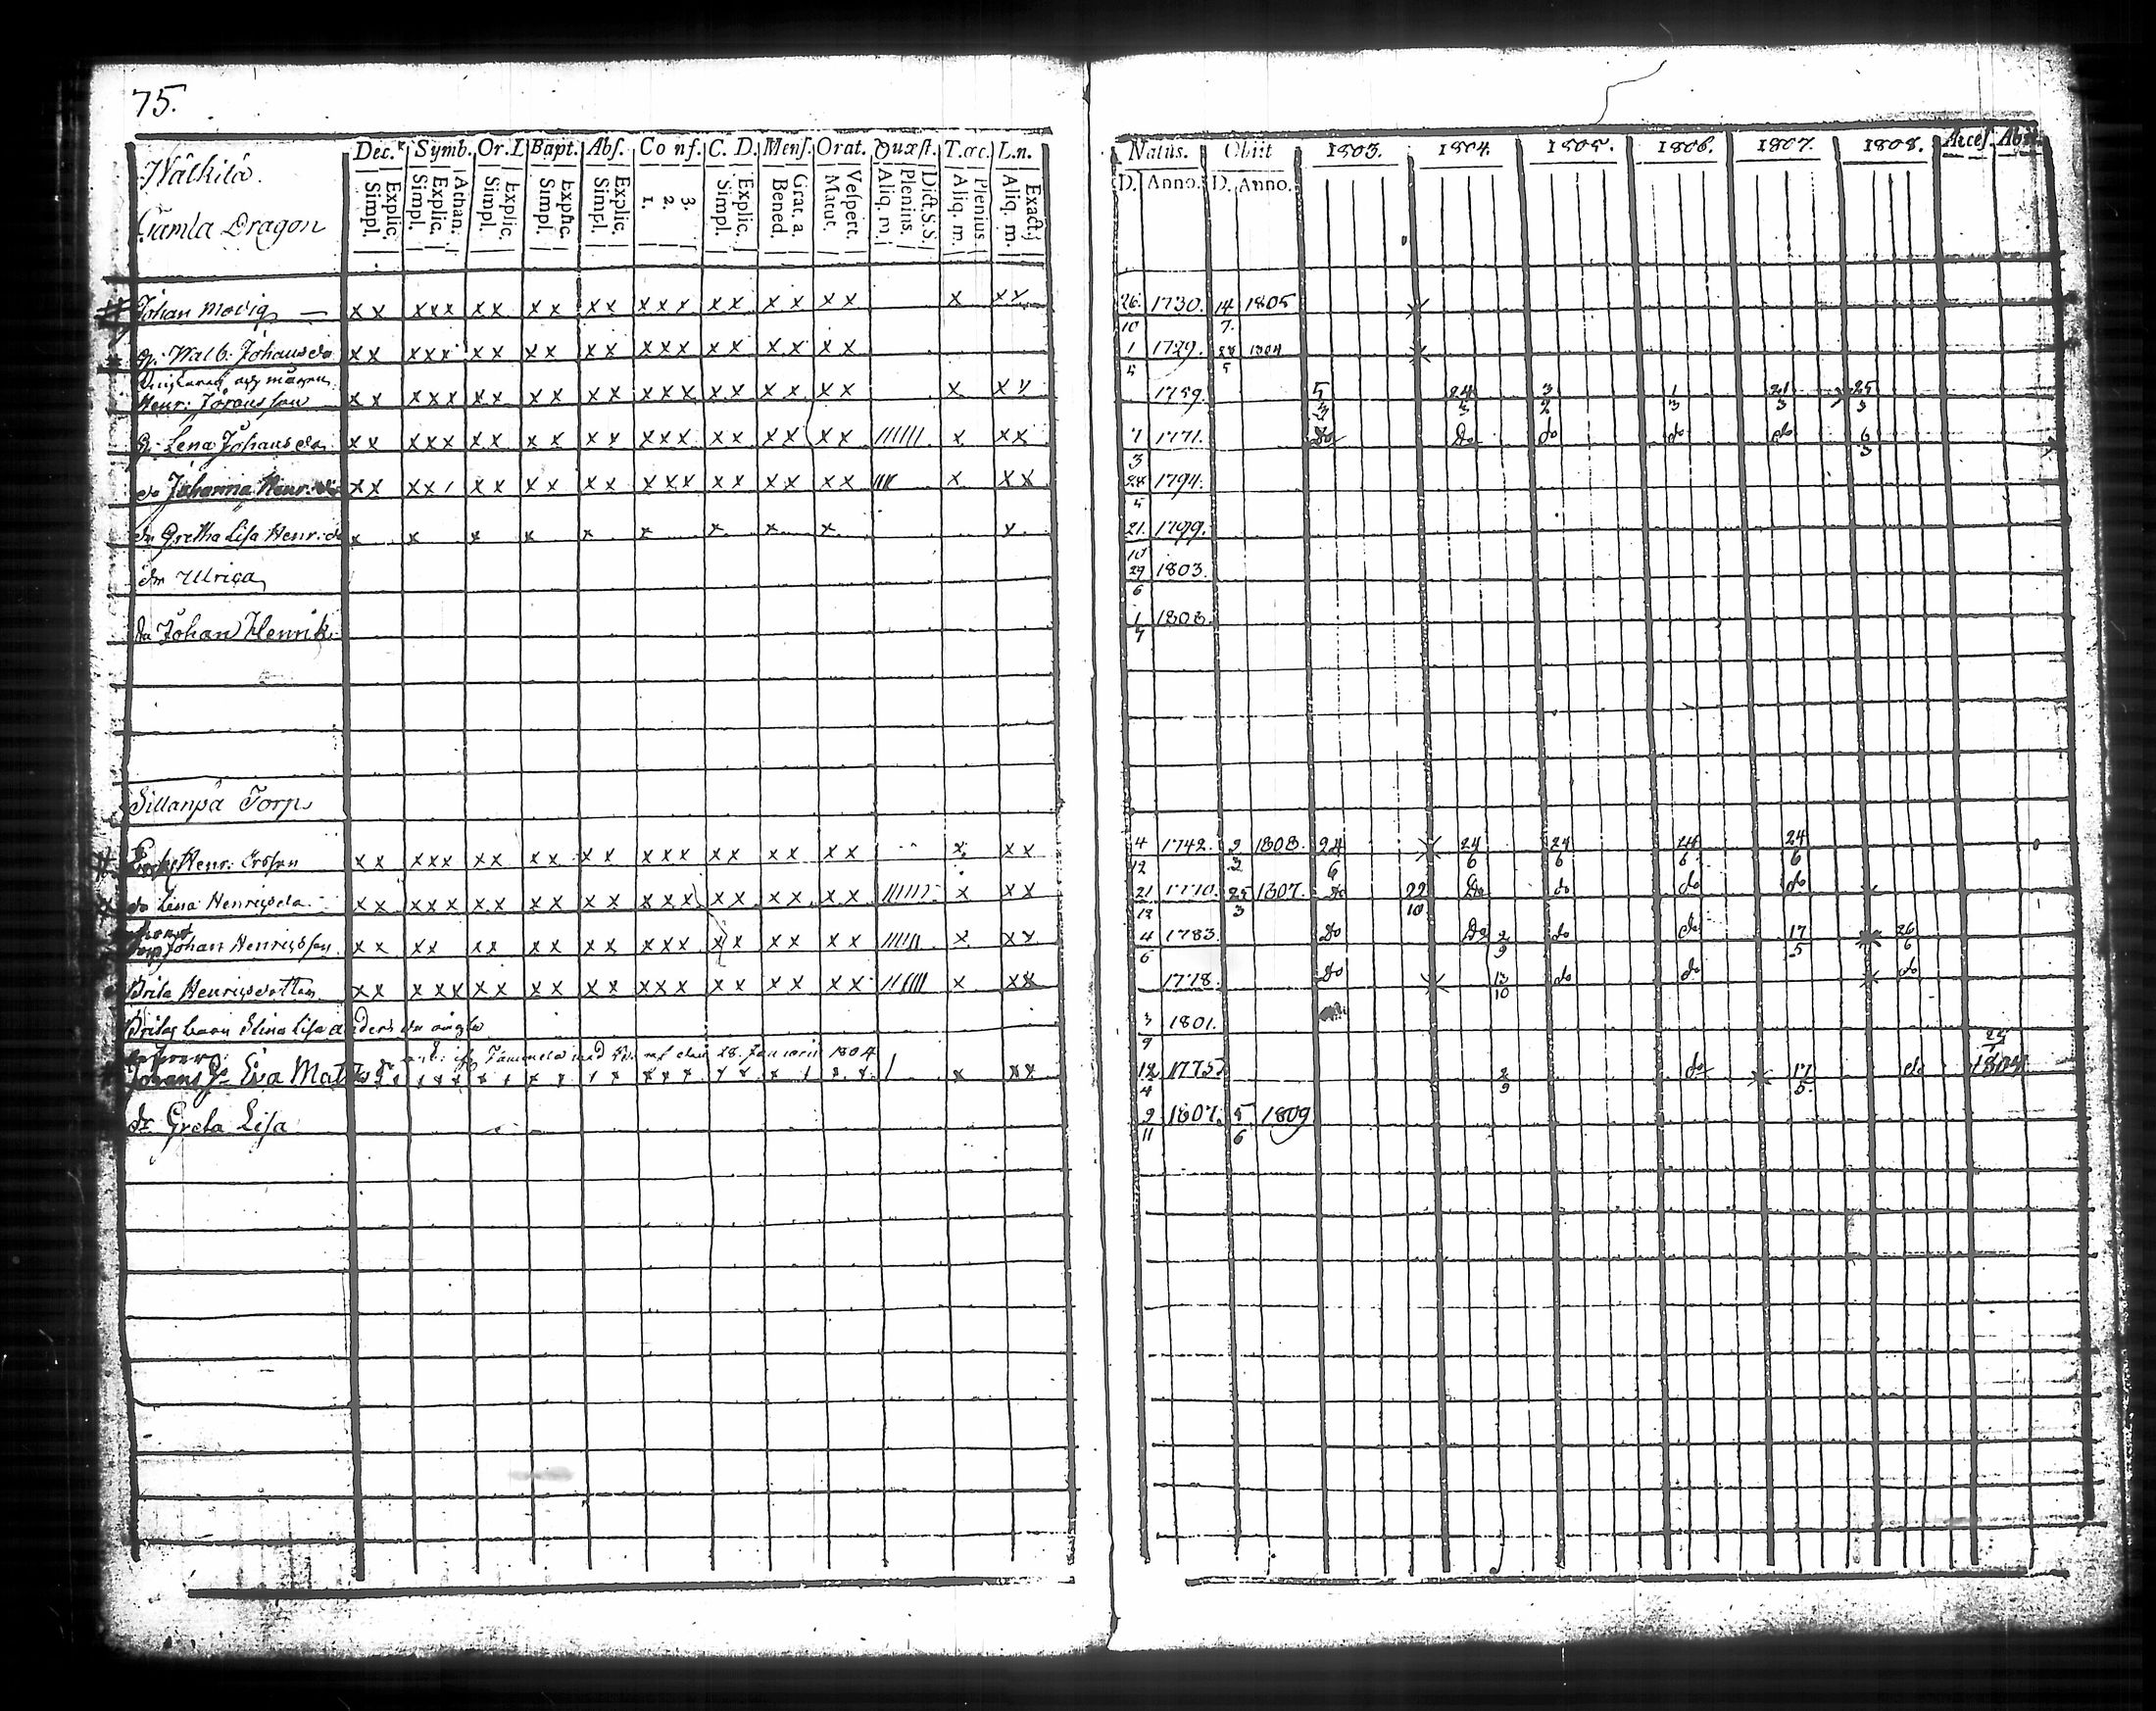 75.
Dec. Symb. Or. D. Bapt. Abſ. Conf. C. D. Menſ. Orat. Quæſt. T. œc. L. n.
Simpl. Explic. Simpl. Explic. Athan. Simpl. Explic. Simpl. Explic. Simpl. Explic. 1. 2. 3. Simpl. Explic. Bened. Grat. a. Matut. Veſpert. Aliq. m. Plenius. Dict. S.S. Aliq. m. Plenius. Aliq. m. Exact.
Natus. Obiit 1803. 1804. 1805. 1806. 1807. 1808. Acceſ. Abit.
D. Anno. D. Anno.
Wälkilä.
Gamla Dragon
Johan Modig — x x x x x x x x x x x x x x x x x x x x x x x 26. 10 1730. 14 7. 1805
h: Walb: Johansdr x x x x x x x x x x x x x x x x x x x x 1 5 1729. 28 5 1804
Henr: Jöransson x x x x x x x x x x x x x x x x x x x x x x x 1759. 5 3 24 3 3 2 1 3 21 3 25 3
h: Lena Johansdr x x x x x x x x x x x x x x x x x x x x ////// x x x 7 3 1771. do do do do do 6 3
dr Johanna Henr: dr x x x x / x x x x x x x x x x x x x x x //// x x x 28 5 1794.
dr Gretha Lisa Henr: dr x x x x x x x x x x 21. 10 1799.
dr Ulrica 29 6 1803.
Johan Henrik 1 7 1808.
Sillanpä Torp
Henr: Ersson x x x x x x x x x x x x x x x x x x x x x x x 4 12 1742. 2 3 1808. 24 6 24 6 24 6 24 6 24 6
do Lena Henricsdr x x x x x x x x x x x x x x x x x x x x ////// x x x 21 12 1770. 25 3 1807. do 22 10 do do do do
Torp Johan Henricsson x x x x x x x x x x x x x x x x x x x ////// x x x 4 6 1783. do do 2 9 do do 17 5 26 6
Brita Henricsdotter x x x x x x x x x x x x x x x x x x x x ////// x x x 1778. do 13 10 do do do
Britas barn Stina Lisa Andersdr 3 9 1801.
Tammela med den 28. Januarii 1804
Eva Mat x x x 12 4 1775. 2 9 do 17 5. do 1804
dr Greta Lisa 2 11 1807. 5 6 1809